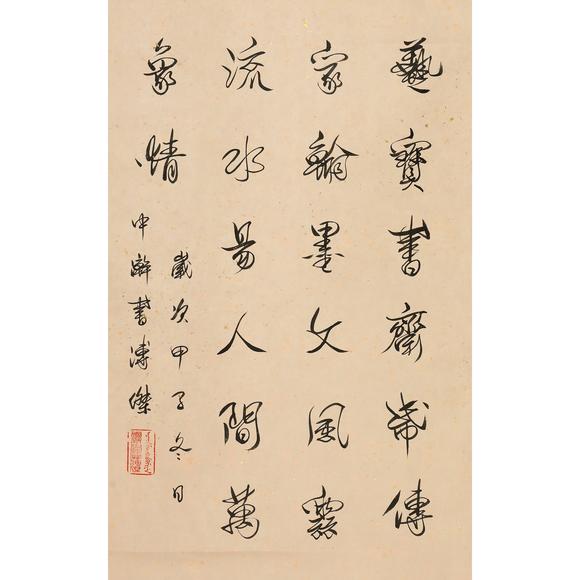 藝寶書齋傳
家翰墨文風
流水易人間萬
象情
歲次甲子冬日
書溥傑